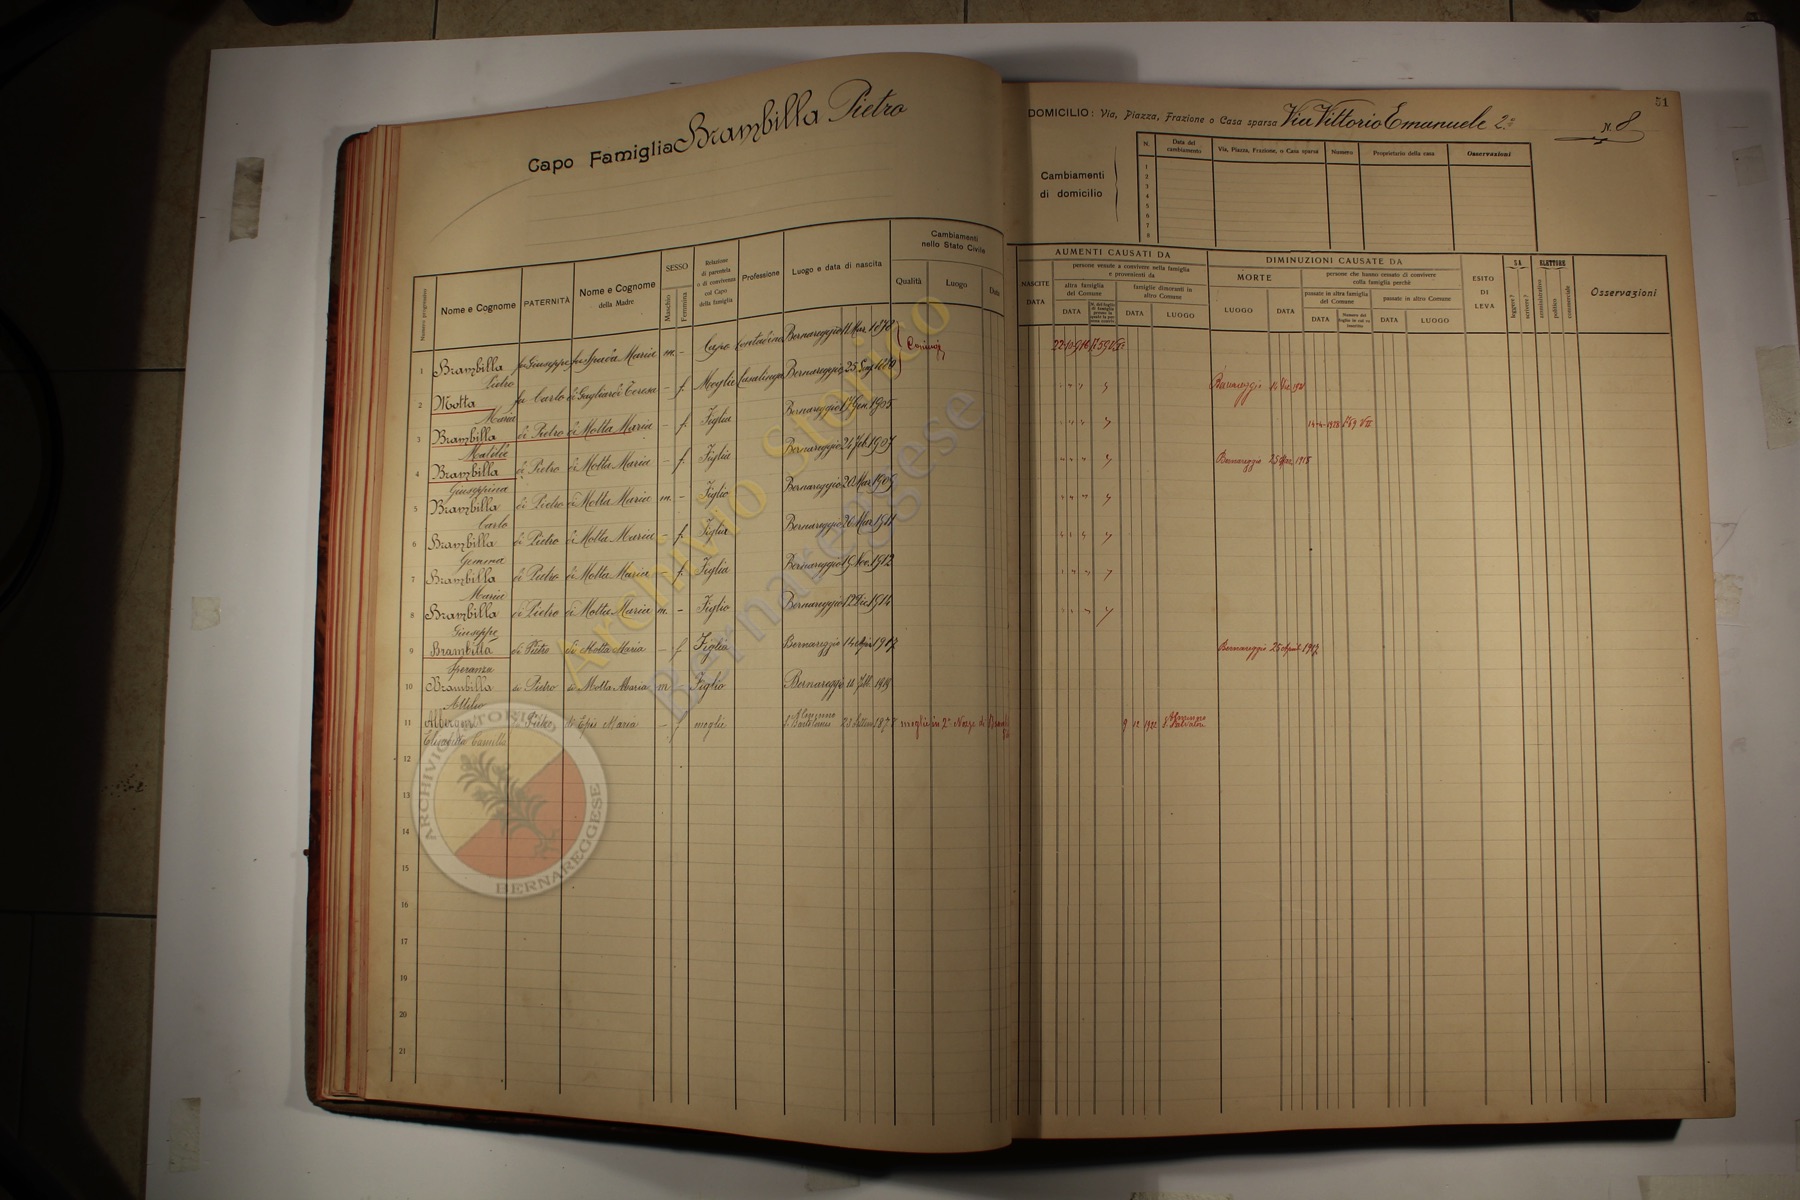 51
Capo Famiglia Brambilla Pietro
DOMICILIO: Via, Piazza, Frazione o Casa sparsa Via Vittorio Emanuele 2º N. 8
Cambiamenti di domicilio
N. Data del cambiamento Via, Piazza, Frazione, o Casa sparsa Numero Proprietario della casa Osservazioni
1
2
3
4
5
6
7
8
Numero progressivo Nome e Cognome PATERNITÀ Nome e Cognome della Madre SESSO Maschio Femmina Relazione di parentela o di convivenza col Capo della famiglia Professione Luogo e data di nascita Cambiamenti nello Stato Civile Qualità Luogo Data
AUMENTI CAUSATI DA
NASCITE DATA
persone venute a convivere nella famiglia e provenienti da
altra famiglia del Comune DATA
famiglie dimoranti in altro Comune DATA LUOGO
DIMINUZIONI CAUSATE DA
MORTE LUOGO DATA
persone che hanno cessato di convivere nella famiglia perchè
passate in altra famiglia del Comune DATA
passate in altro Comune DATA LUOGO
ESITO DI LEVA
SA leggere? scrivere?
ELETTORE amministrativo politico commerciale
Osservazioni
1 Brambilla Pietro fu Giuseppe fu Spada Maria m. - Capo Contadino Bernareggio 11 Mar. 1878 Coniug. 22-10-916
2 Motta Maria fu Carlo di Gagliardi Teresa - f. Moglie Casalinga Bernareggio 25 1880 Bernareggio
3 Brambilla Matilde di Pietro di Motta Maria - f. Figlia Bernareggio 17 Gen. 1905 14-4-1928
4 Brambilla Giuseppina di Pietro di Motta Maria - f. Figlia Bernareggio 24 Feb. 1907 Bernareggio 25 1918
5 Brambilla Carlo di Pietro di Motta Maria m. - Figlio Bernareggio 20 Mar. 1909
6 Brambilla Gemma di Pietro di Motta Maria - f. Figlia Bernareggio 26 Mar. 1911
7 Brambilla Maria di Pietro di Motta Maria - f. Figlia Bernareggio 19 Nov. 1912
8 Brambilla Giuseppe di Pietro di Motta Maria m. - Figlio Bernareggio 12 Dic. 1914
9 Brambilla Speranza di Pietro di Motta Maria - f. Figlia Bernareggio 14 Apr. 1917 Bernareggio 25 April 1917
10 Brambilla Attilio di Pietro di Motta Maria m Figlio Bernareggio 1919
11 Elisabetta Camilla Maria - f moglie Almenno S. Bartolomeo 23 1878 moglie in 2e Nozze di 9 12 1922 Almenno S. Salvatore
12
13
14
15
16
17
18
19
20
21
Archivio Storico
Bernareggese
ARCHIVIO STORICO
BERNAREGGESE